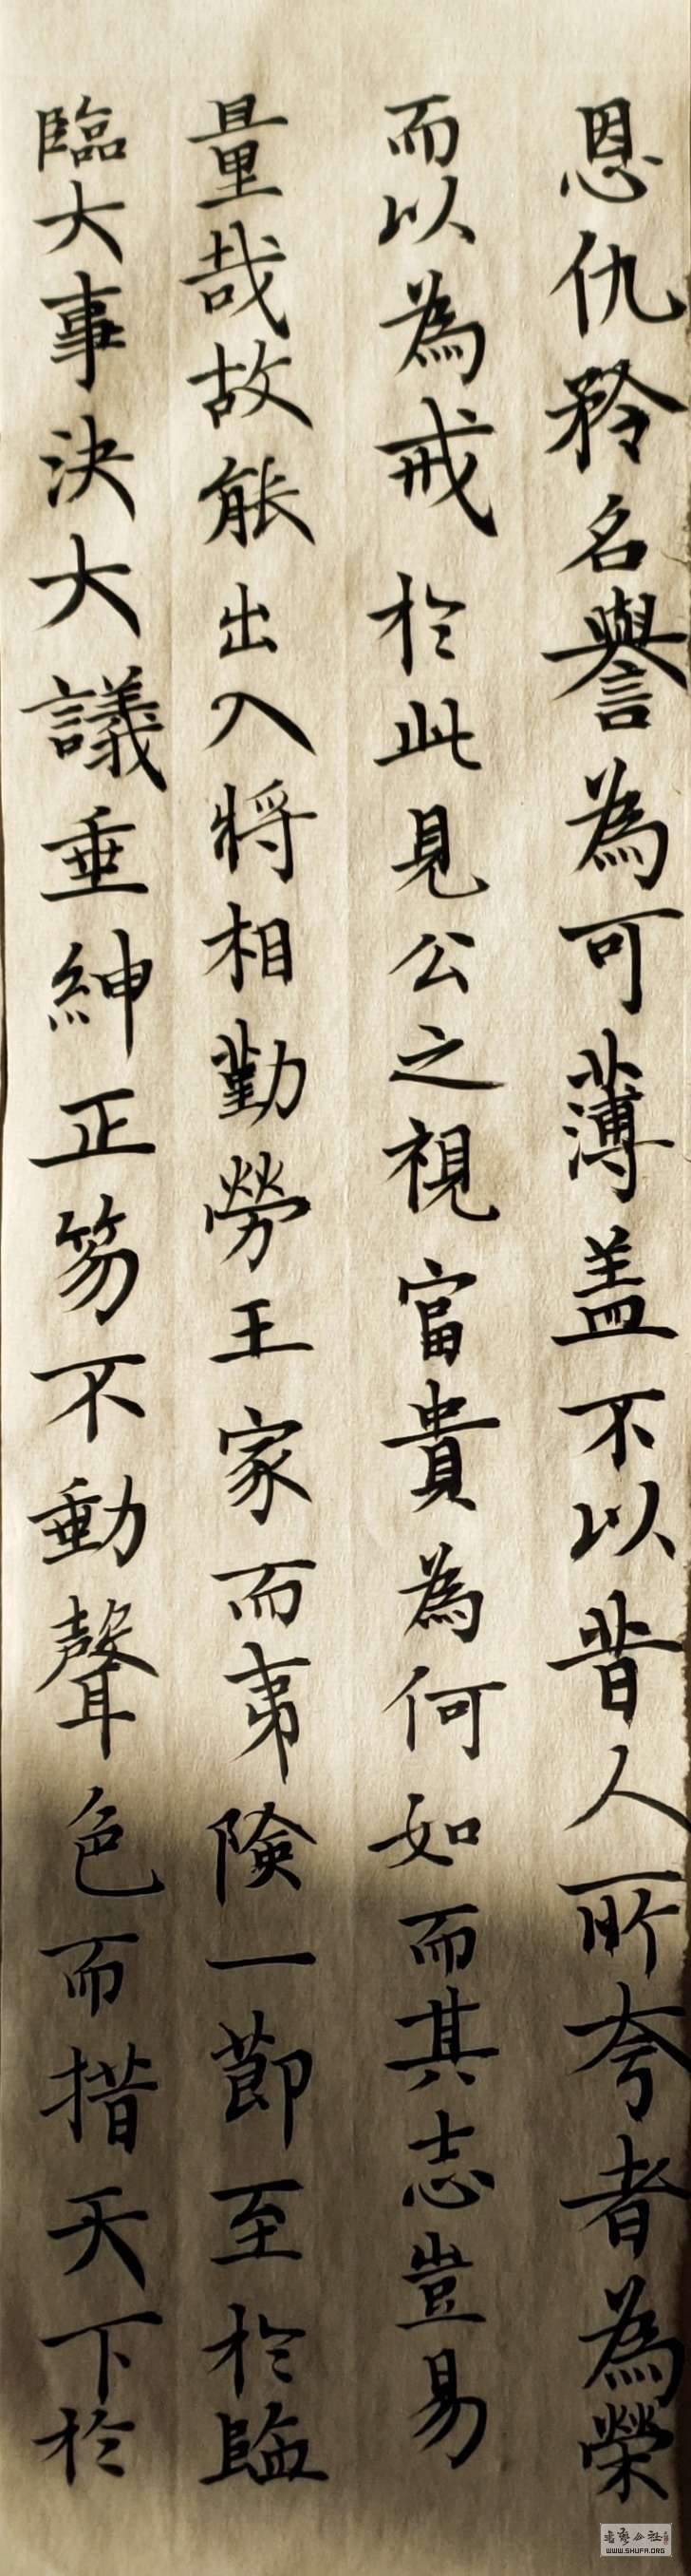 恩仇矜名譽為可薄盖不以昔人所夸者為榮
而以為戒於此見公之視富貴為何如而其志豈易
量哉故能出入將相勤勞王家而夷險一節至於臨
臨大事決大議垂紳正笏不動聲色而措天下於
WWW.SHUFA.ORG